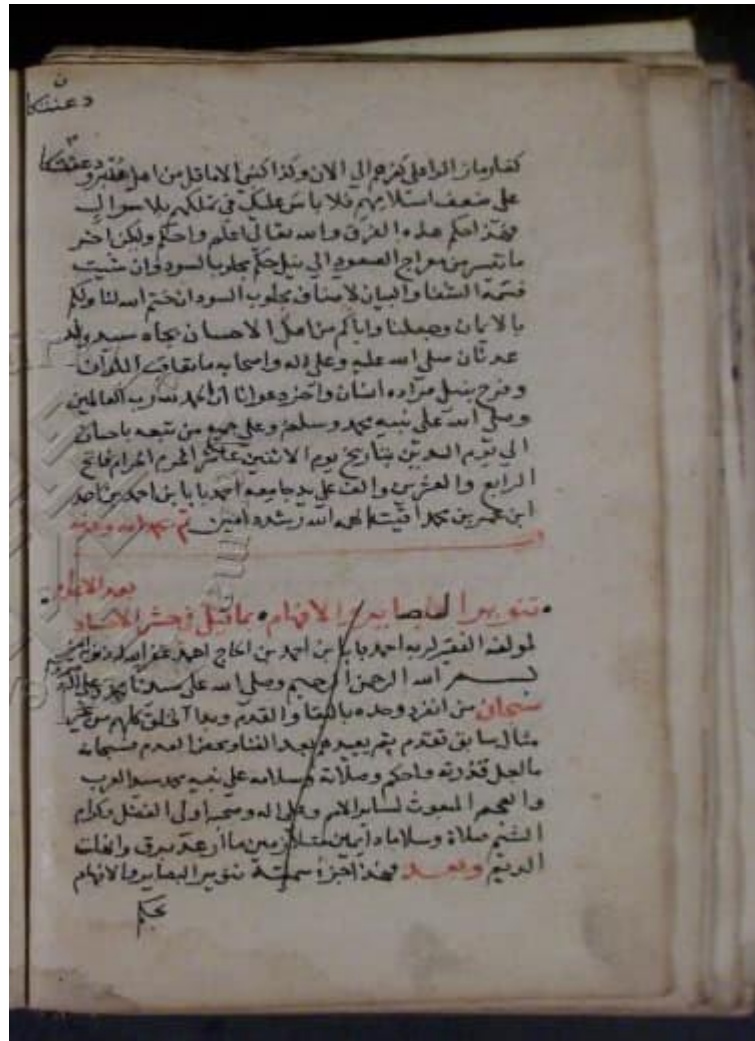 دعنتكا
كفار مان الداعلى كفرهم الى الان وكذا كشى الاماقل من اهل
على ضعف اسلامهم فلا باس عليك فى تملكهم بلا سوال
فهذا حكم هذه الفرق والله تعالى اعلم واحكم ولكن اخر
ما تيسر من معراج الصعود الى نيل حكم مجلوب السود وان شيت
قسمه الشفا والبيان لاصناف مجلوب السودان ختم الله لنا ولكم
بالايمان وجعلنا واياكم من اهل الاحسان بجاه سيد ولد
عدنان صلى الله عليه وعلى اله واصحابه ما تعاقب الملوان
وفرح بنيل مراده انسان واخر دعوانا ان الحمد لله رب العالمين
وصلى الله على نبيه محمد وسلم وعلى جميع من تبعه باحسان
الى يوم الدين بتاريخ يوم الاثنين عاشر المحرم الحرام فاتح
الرابع والعشرين والف على يد جامعه احمد بابا بن احمد بن احمد
ابن عمر بن محمد اقيت الهمه الله رشده امين تم بحمد الله وعونه
تنوير البصاير والافهام بما قيل فى حشر الاجساد
بعد الاعدام
لمولفه الفقير لربه احمد بابا بن احمد بن الحاج احمد غفر الله له
بسم الله الرحمن الرحيم وصلى الله على سيدنا محمد وعلى اله
سبحان من انفرد وحده بالبقا والقدم وبدا الخلق كلهم من غير
مثال سابق تقدم ثم يعيدهم بعد الفنا ومحض العدم فسبحانه
ما اجل قدرته واحكم وصلاته وسلامه على نبيه محمد سيد العرب
والعجم المبعوث لساير الامم وعلى اله وصحبه اولى الفضل وكرام
الشيم صلاة وسلاما دايمين متلازمين ما ارعد برق وانهلت
الديم وبعد فهذا جزء سميته تنوير البصاير والافهام
بحكم